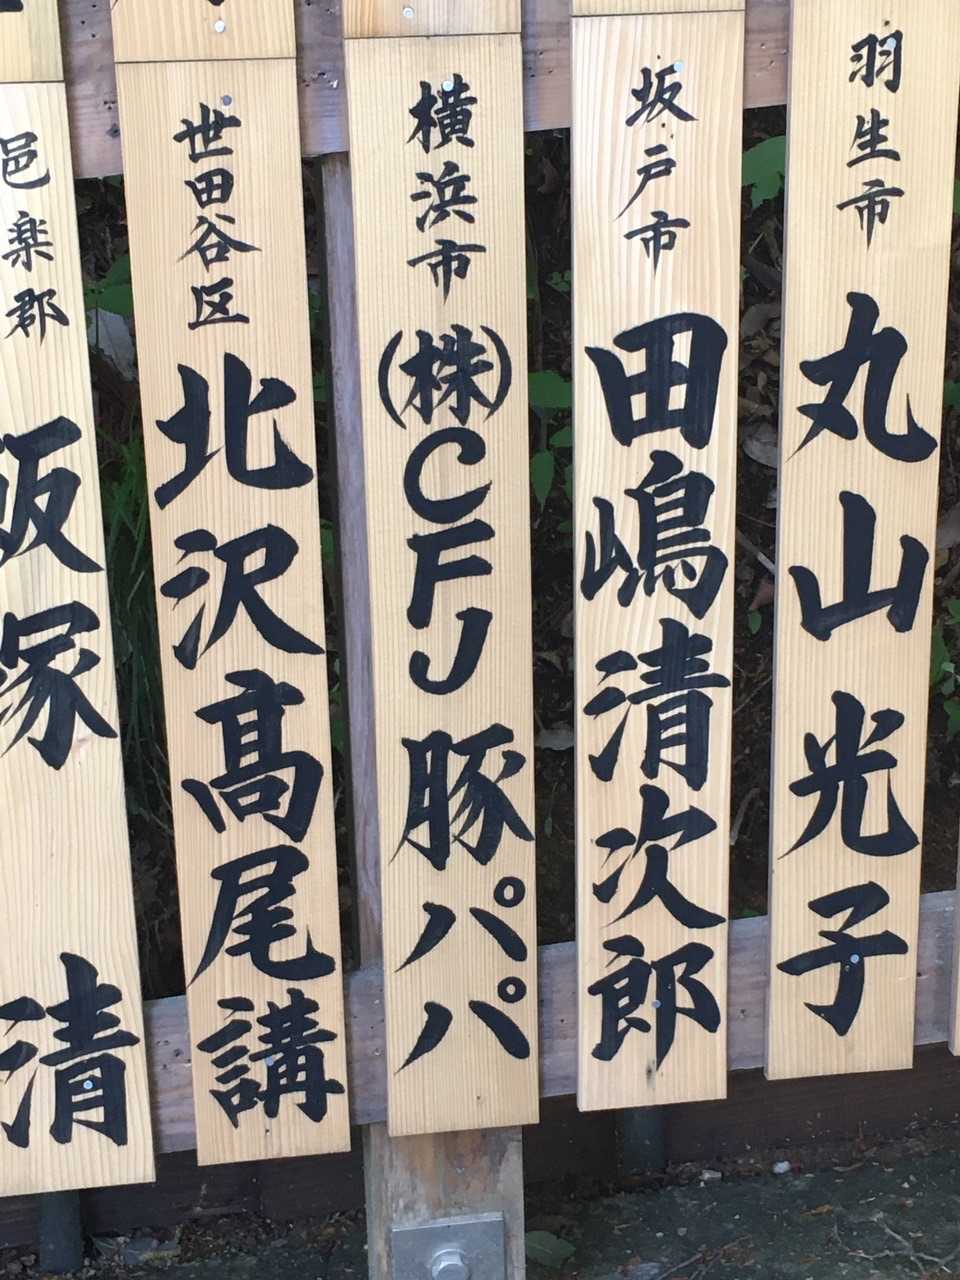 羽生市 丸山光子
坂戸市 田嶋清次郎
横浜市 ㈱CFJ 豚パパ
世田谷区 北沢髙尾講
邑楽郡 飯塚 清